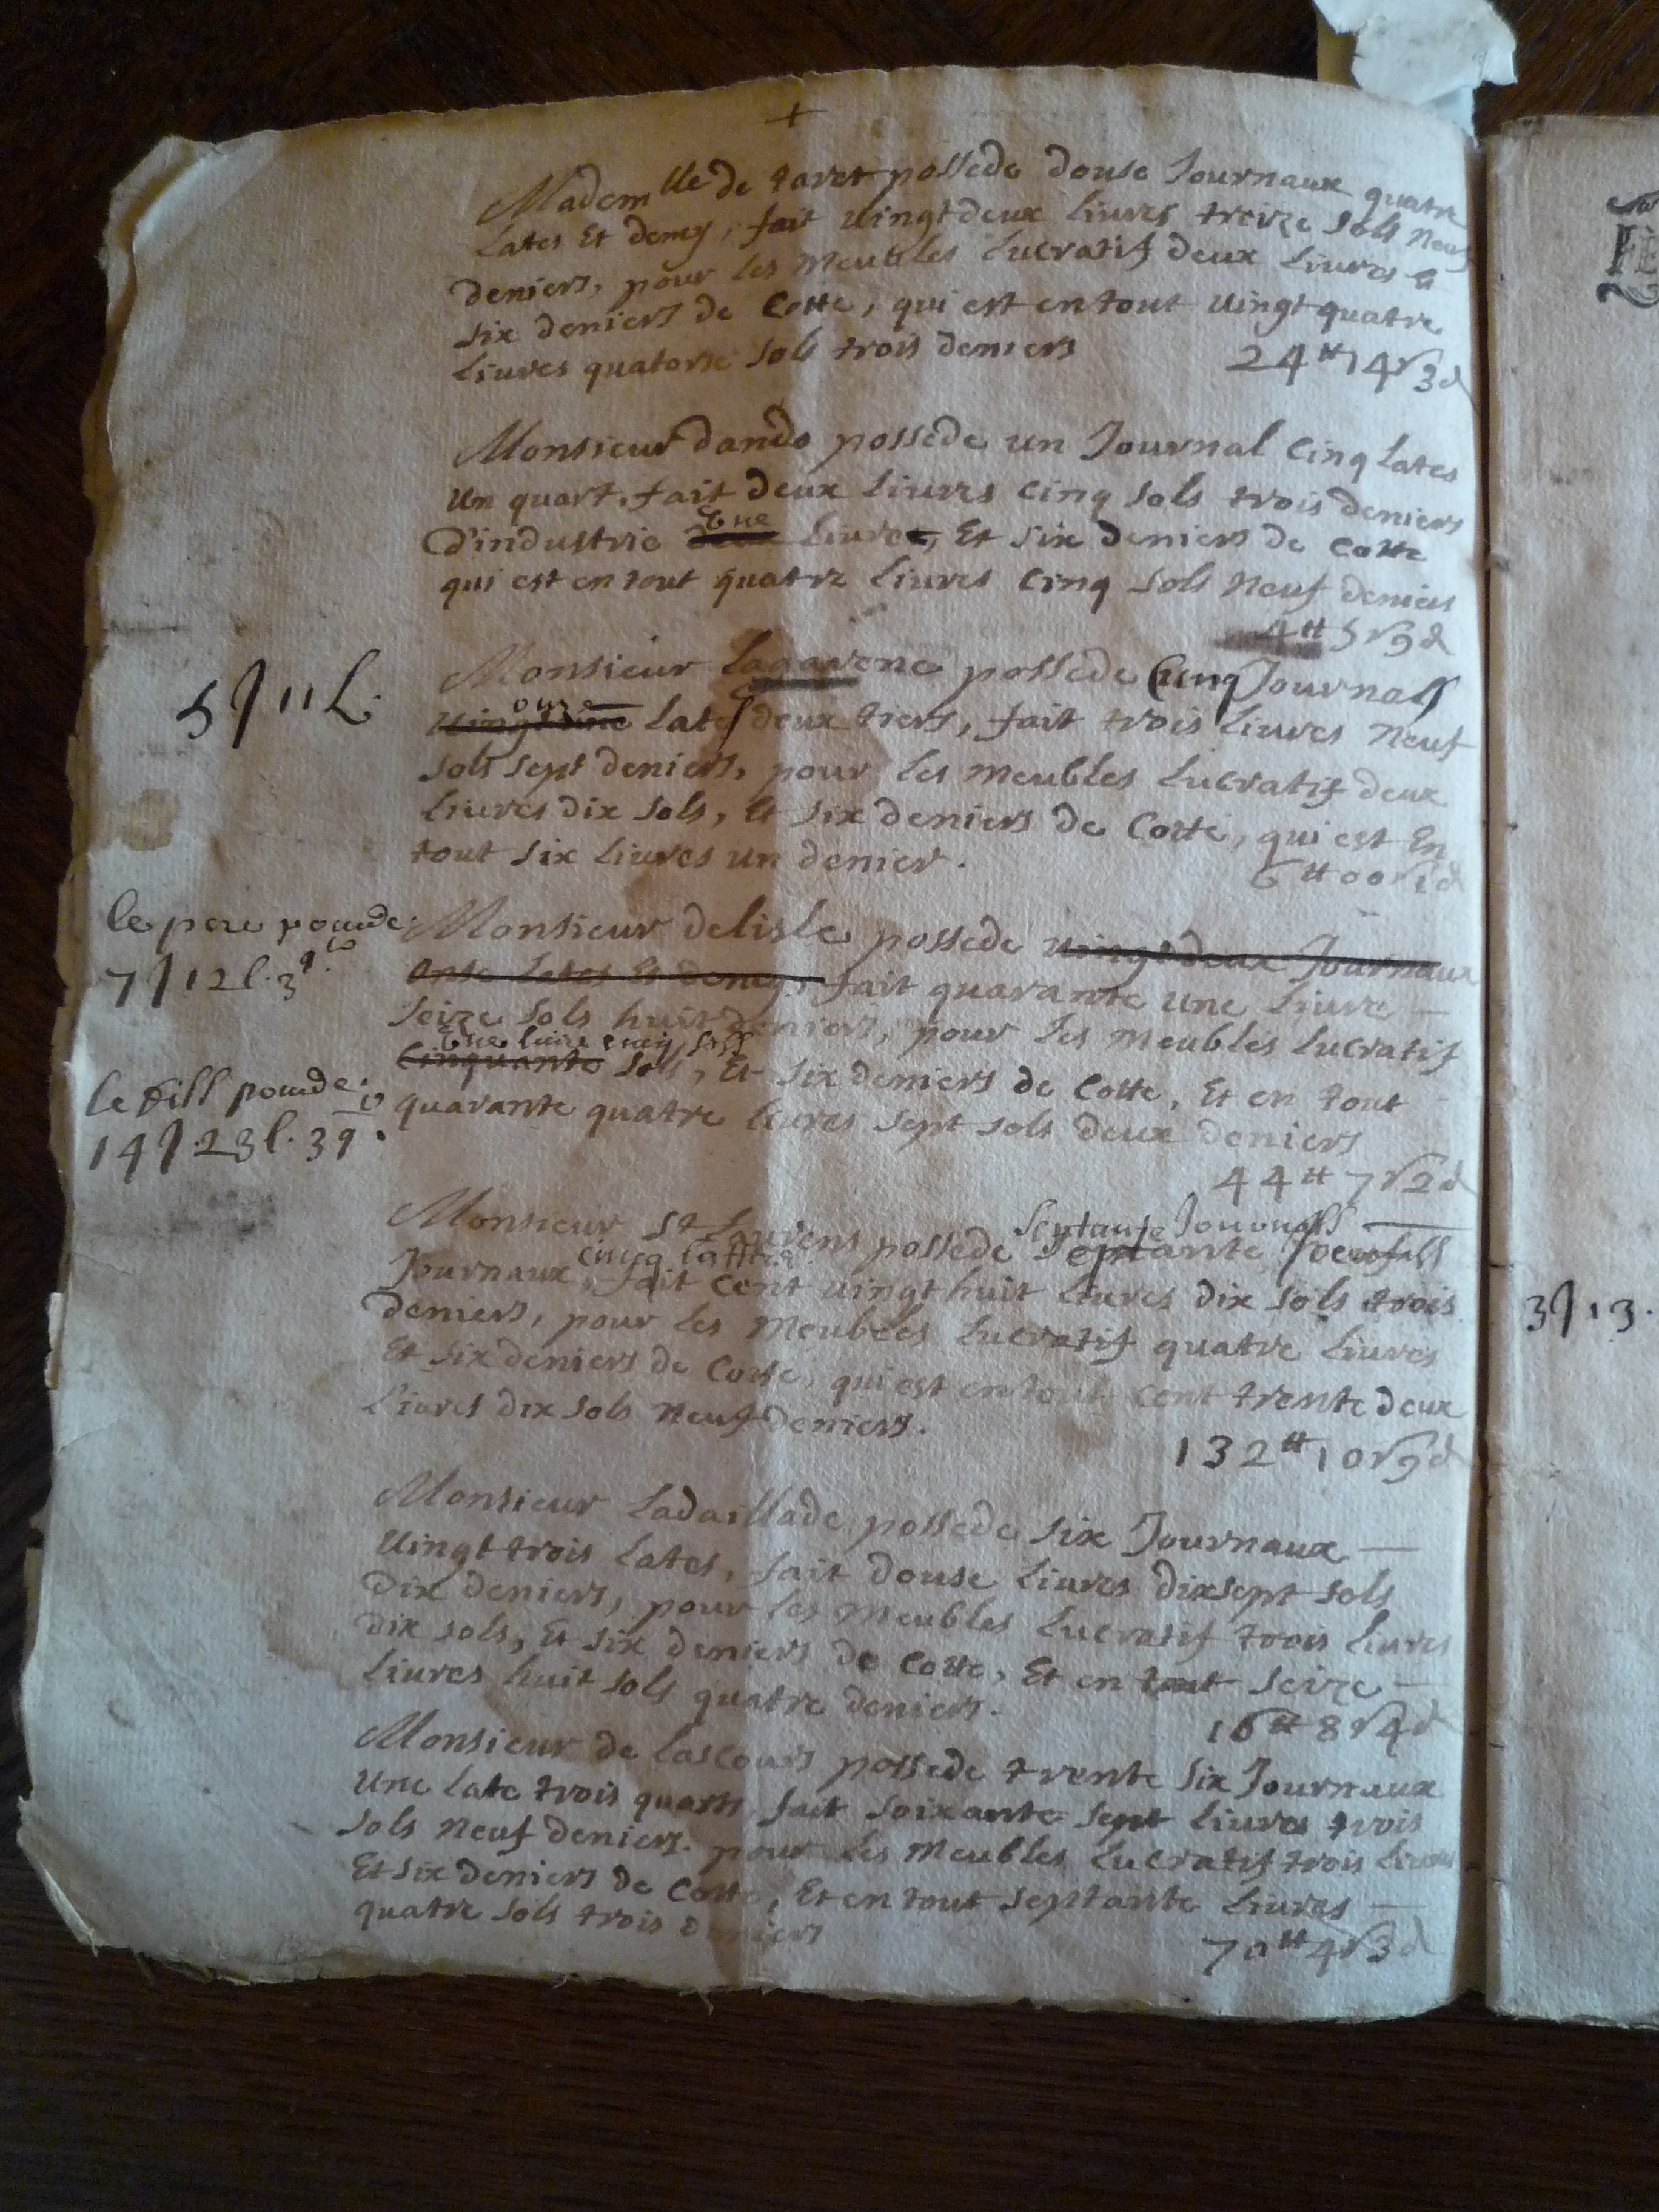 +
Madem lle de tavet possede douse Journaux quatre
Lates Et demy, fait vingtdeux Livres treize sols neuf
deniers, pour les Meubles Lucratif deux Livres &
six deniers de Cotte, qui est entout vingtquatre
Livres quatorse sols trois deniers
24 tt 14 s 3 d
Monsieur dando possede un Journal Cinq Lates
Un quart, fait deux Livres cinq sols trois deniers
Une
D'industrie deux Livre, Et six deniers de cotte
qui est en tout quatre Livres Cinq sols Neuf deniers
4 tt 5 s 9 d
Monsieur Lagarene possede Cinq Journals
5 J 11 L.
onze
Lates deux tiers, fait trois Livres Neuf
sols sept deniers, pour les Meubles Lucratif deux
Livres dix sols, Et six deniers de Cotte, qui est En
tout six Livres un denier.
6 tt 00 s 1 d
le pere pocede
7 J 12 l. 3 q.
Monsieur delisle possede vingtdeux Journaux
Onse Lates Et demy, fait quarante Une Livre —
seize sols huit deniers, pour les Meubles Lucratif
Une livre cinq sols
Cinquante sols, Et six deniers de Cotte, Et en tout
le fill pocede
14 J. 23 l. 3 q.
quarante quatre Livres sept sols deux deniers
44 tt 7 s 2 d
Septante Journalls
Monsieur St Laurens possede septante
cincq lattes
Journaux, fait Cent vingt huit Livres dix sols trois
deniers, pour les Meubles Lucratif quatre Livres
Et six deniers de Cotte, qui est entout Cent trente deux
Livres dix sols neuf deniers.
132 tt 10 s 9 d
Monsieur Ladaillade possede six Journaux —
Vingt trois Lates, fait douse Livres dixsept sols
Dix deniers, pour les Meubles Lucratif trois Livres
dix sols, Et six deniers de Cotte, Et en tout seize —
Livres huit sols quatre deniers.
16 tt 8 s 4 d
Monsieur de Lascours possede trente six Journaux
Une Late trois quarts, fait soixante sept Livres trois
sols Neuf deniers. pour les Meubles Lucratif trois Livres
Et six deniers de Cotte, Et en tout septante Livres —
quatre sols trois deniers
70 tt 4 s 3 d
3 J 13.